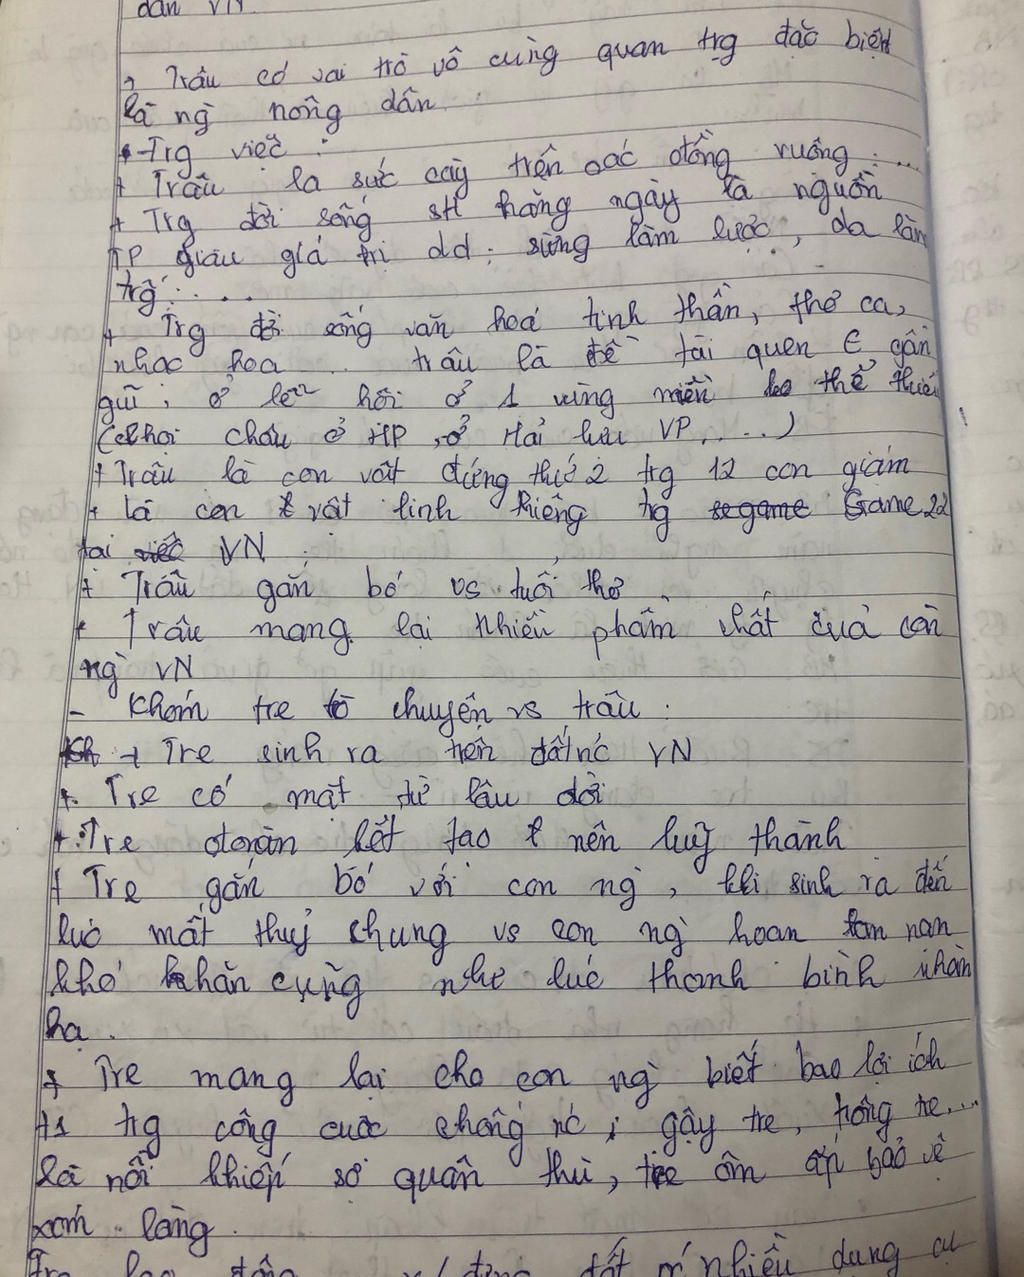 dân VN
→ Trâu có vai trò vô cùng quan trg đặc biệt
là ng` nông dân
- Trg việc :
+ Trâu là sức cày trên các đồng ruộng : ...
+ Trg đời sống sH hằng ngày là nguồn
TP giàu giá trị dd ; sừng làm lược, da làm
trg ....
+ Trg đời sống văn hoá tinh thần, thơ ca,
nhạc hoạ ... trâu là đề tài quen € gần
gũi ; ở lễ hội ở 1 vùng miền thể thiếu
(chọi châu ở HP, ở Hải lựu VP, ....)
+ Trâu là con vật đứng thứ 2 trg 12 con giám
+ là con vật linh thiêng trg Game 22
tại VN
+ Trâu gắn bó vs tuổi thơ
+ Trâu mang lại nhiều phẩm chất của con
ng` VN
- Khóm tre tò chuyện vs trâu :
+ Tre sinh ra trên đất nc VN
+ Tre có mặt từ lâu đời
+ Tre đoàn kết tạo nên luỹ thành
+ Tre gắn bó với con ng`, khi sinh ra đến
lúc mất thuỷ chung vs con ng` hoạn nạn
khó khăn cũng như lúc thanh bình nhàn
hạ .
+ Tre mang lại cho con ng` biết bao lợi ích
+1 trg công cuộc chống nc ; gậy tre, trông tre,...
là nỗi khiếp sợ quân thù, tre ôm ấp bảo vệ
xóm làng .
đất nhiều dụng cụ